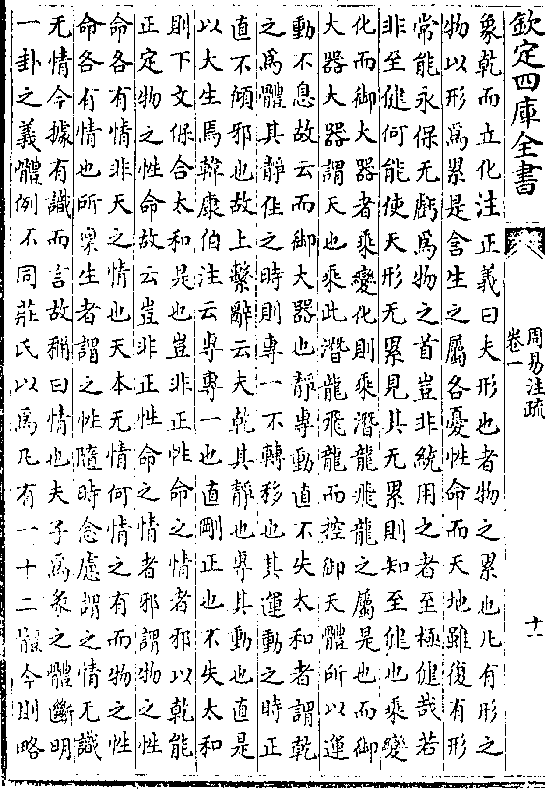 欽定四庫全書
周易注疏
卷一
十一
象乾而立化注正義曰夫形也者物之累也凡有形之
物以形爲累是含生之屬各憂性命而天地雖復有形
常能永保无虧爲物之首豈非統用之者至極健哉若
非至健何能使天形无累見其无累則知至健也乘變
化而御大器者乘變化則乘潛龍飛龍之屬是也而御
大器大器謂天也乘此潛龍飛龍而控御天體所以運
動不息故云而御大器也靜專動直不失太和者謂乾
之爲體其靜住之時則專一不轉移也其運動之時正
直不傾邪也故上繫辭云夫乾其靜也專其動也直是
以大生焉韓康伯注云專專一也直剛正也不失太和
則下文保合太和是也豈非正性命之情者邪以乾能
正定物之性命故云豈非正性命之情者邪謂物之性
命各有情非天之情也天本无情何情之有而物之性
命各有情也所稟生者謂之性隨時念慮謂之情无識
无情今據有識而言故稱曰情也夫子爲彖之體斷明
一卦之義體例不同莊氏以爲凡有一十二體今則略